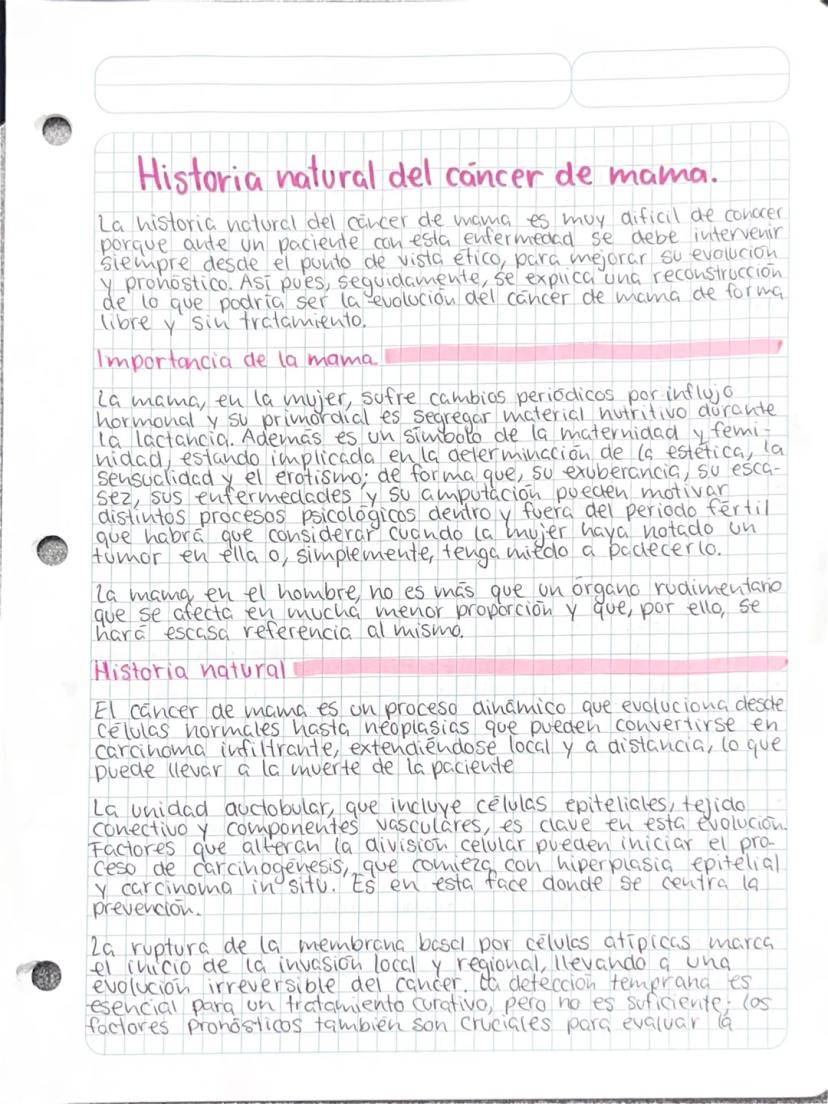 Historia natural del cáncer de mama.
La historia natural del cáncer de mama es muy dificil de conocer
porque ante un paciente con esta enfermedad se debe intervenir
siempre desde el punto de vista ético, para mejorar su evolución
y pronóstico. Así pues, seguidamente, se explica una reconstrucción
de lo que podría ser la evolución del cáncer de mama de forma
libre y sin tratamiento.
Importancia de la mama
La mama, en la mujer, sufre cambios periódicos por influjo
hormonal y su primordial es segregar material nutritivo durante
la lactancia. Además es un símbolo de la maternidad y femi-
nidad, estando implicada en la determinación de la estética, la
sensualidad y el erotismo; de forma que, su exuberancia, su esca-
sez, sus enfermedades y su amputación pueden motivar
distintos procesos psicológicos dentro y fuera del periodo fértil
que habrá que considerar cuando la mujer haya notado un
tumor en ella o, simplemente, tenga miedo a padecerlo.
La mama, en el hombre, no es más que un órgano rudimentario
que se afecta en mucha menor proporción y que, por ello, se
hará escasa referencia al mismo.
Historia natural
El cáncer de mama es un proceso dinámico que evoluciona desde
células normales hasta neoplasias que pueden convertirse en
carcinoma infiltrante, extendiéndose local y a distancia, lo que
puede llevar a la muerte de la paciente
La unidad auctobular, que incluye células epiteliales, tejido
conectivo y componentes vasculares, es clave en esta evolución.
Factores que alteran la división celular pueden iniciar el pro-
ceso de carcinogénesis, que comieza con hiperplasia epitelial
y carcinoma in situ. Es en esta face donde se centra la
prevención.
La ruptura de la membrana basal por células atípicas marca
el inicio de la invasión local y regional, llevando a una
evolución irreversible del cancer. La detección temprana es
esencial para un tratamiento curativo, pero no es suficiente; los
factores pronósticos también son cruciales para evaluar la